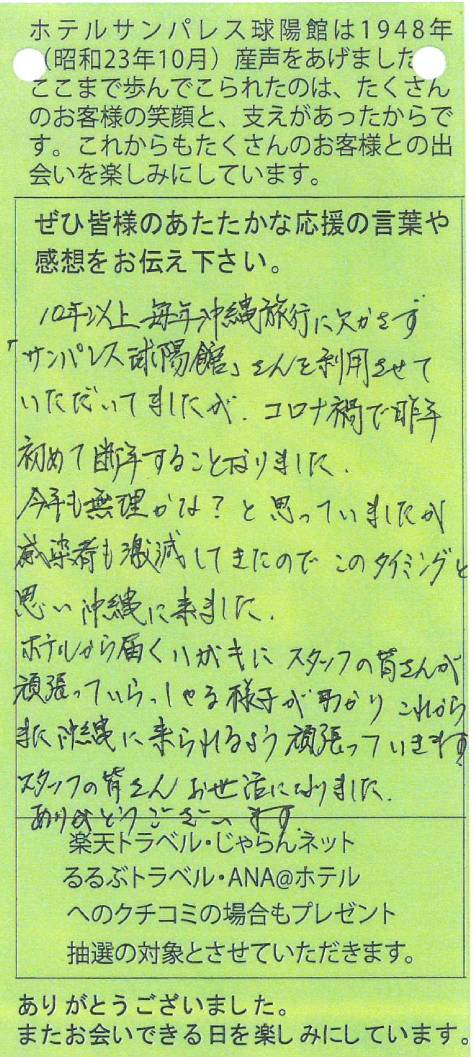 ホテルサンパレス球陽館は1948年
（昭和23年10月）産声をあげました
ここまで歩んでこられたのは、たくさん
のお客様の笑顔と、支えがあったからで
す。これからもたくさんのお客様との出
会いを楽しみにしています。
ぜひ皆様のあたたかな応援の言葉や
感想をお伝え下さい。
10年以上毎年沖縄旅行に欠かさず
「サンパレス球陽館」さんを利用させて
いただいてましたが、コロナ禍で昨年
初めて断念することなりました.
今年も無理かな？と思っていましたが
感染者も激減してきたのでこのタイミングと
思い沖縄に来ました.
ホテルから届くハガキにスタッフの皆さんが
頑張っていらっしゃる様子がわかりこれから
また沖縄に来られるよう頑張っていきます
スタッフの皆さんお世話になりました.
ありがとうございます
楽天トラベル・じゃらんネット
るるぶトラベル・ANA@ホテル
へのクチコミの場合もプレゼント
抽選の対象とさせていただきます。
ありがとうございました。
またお会いできる日を楽しみにしています。